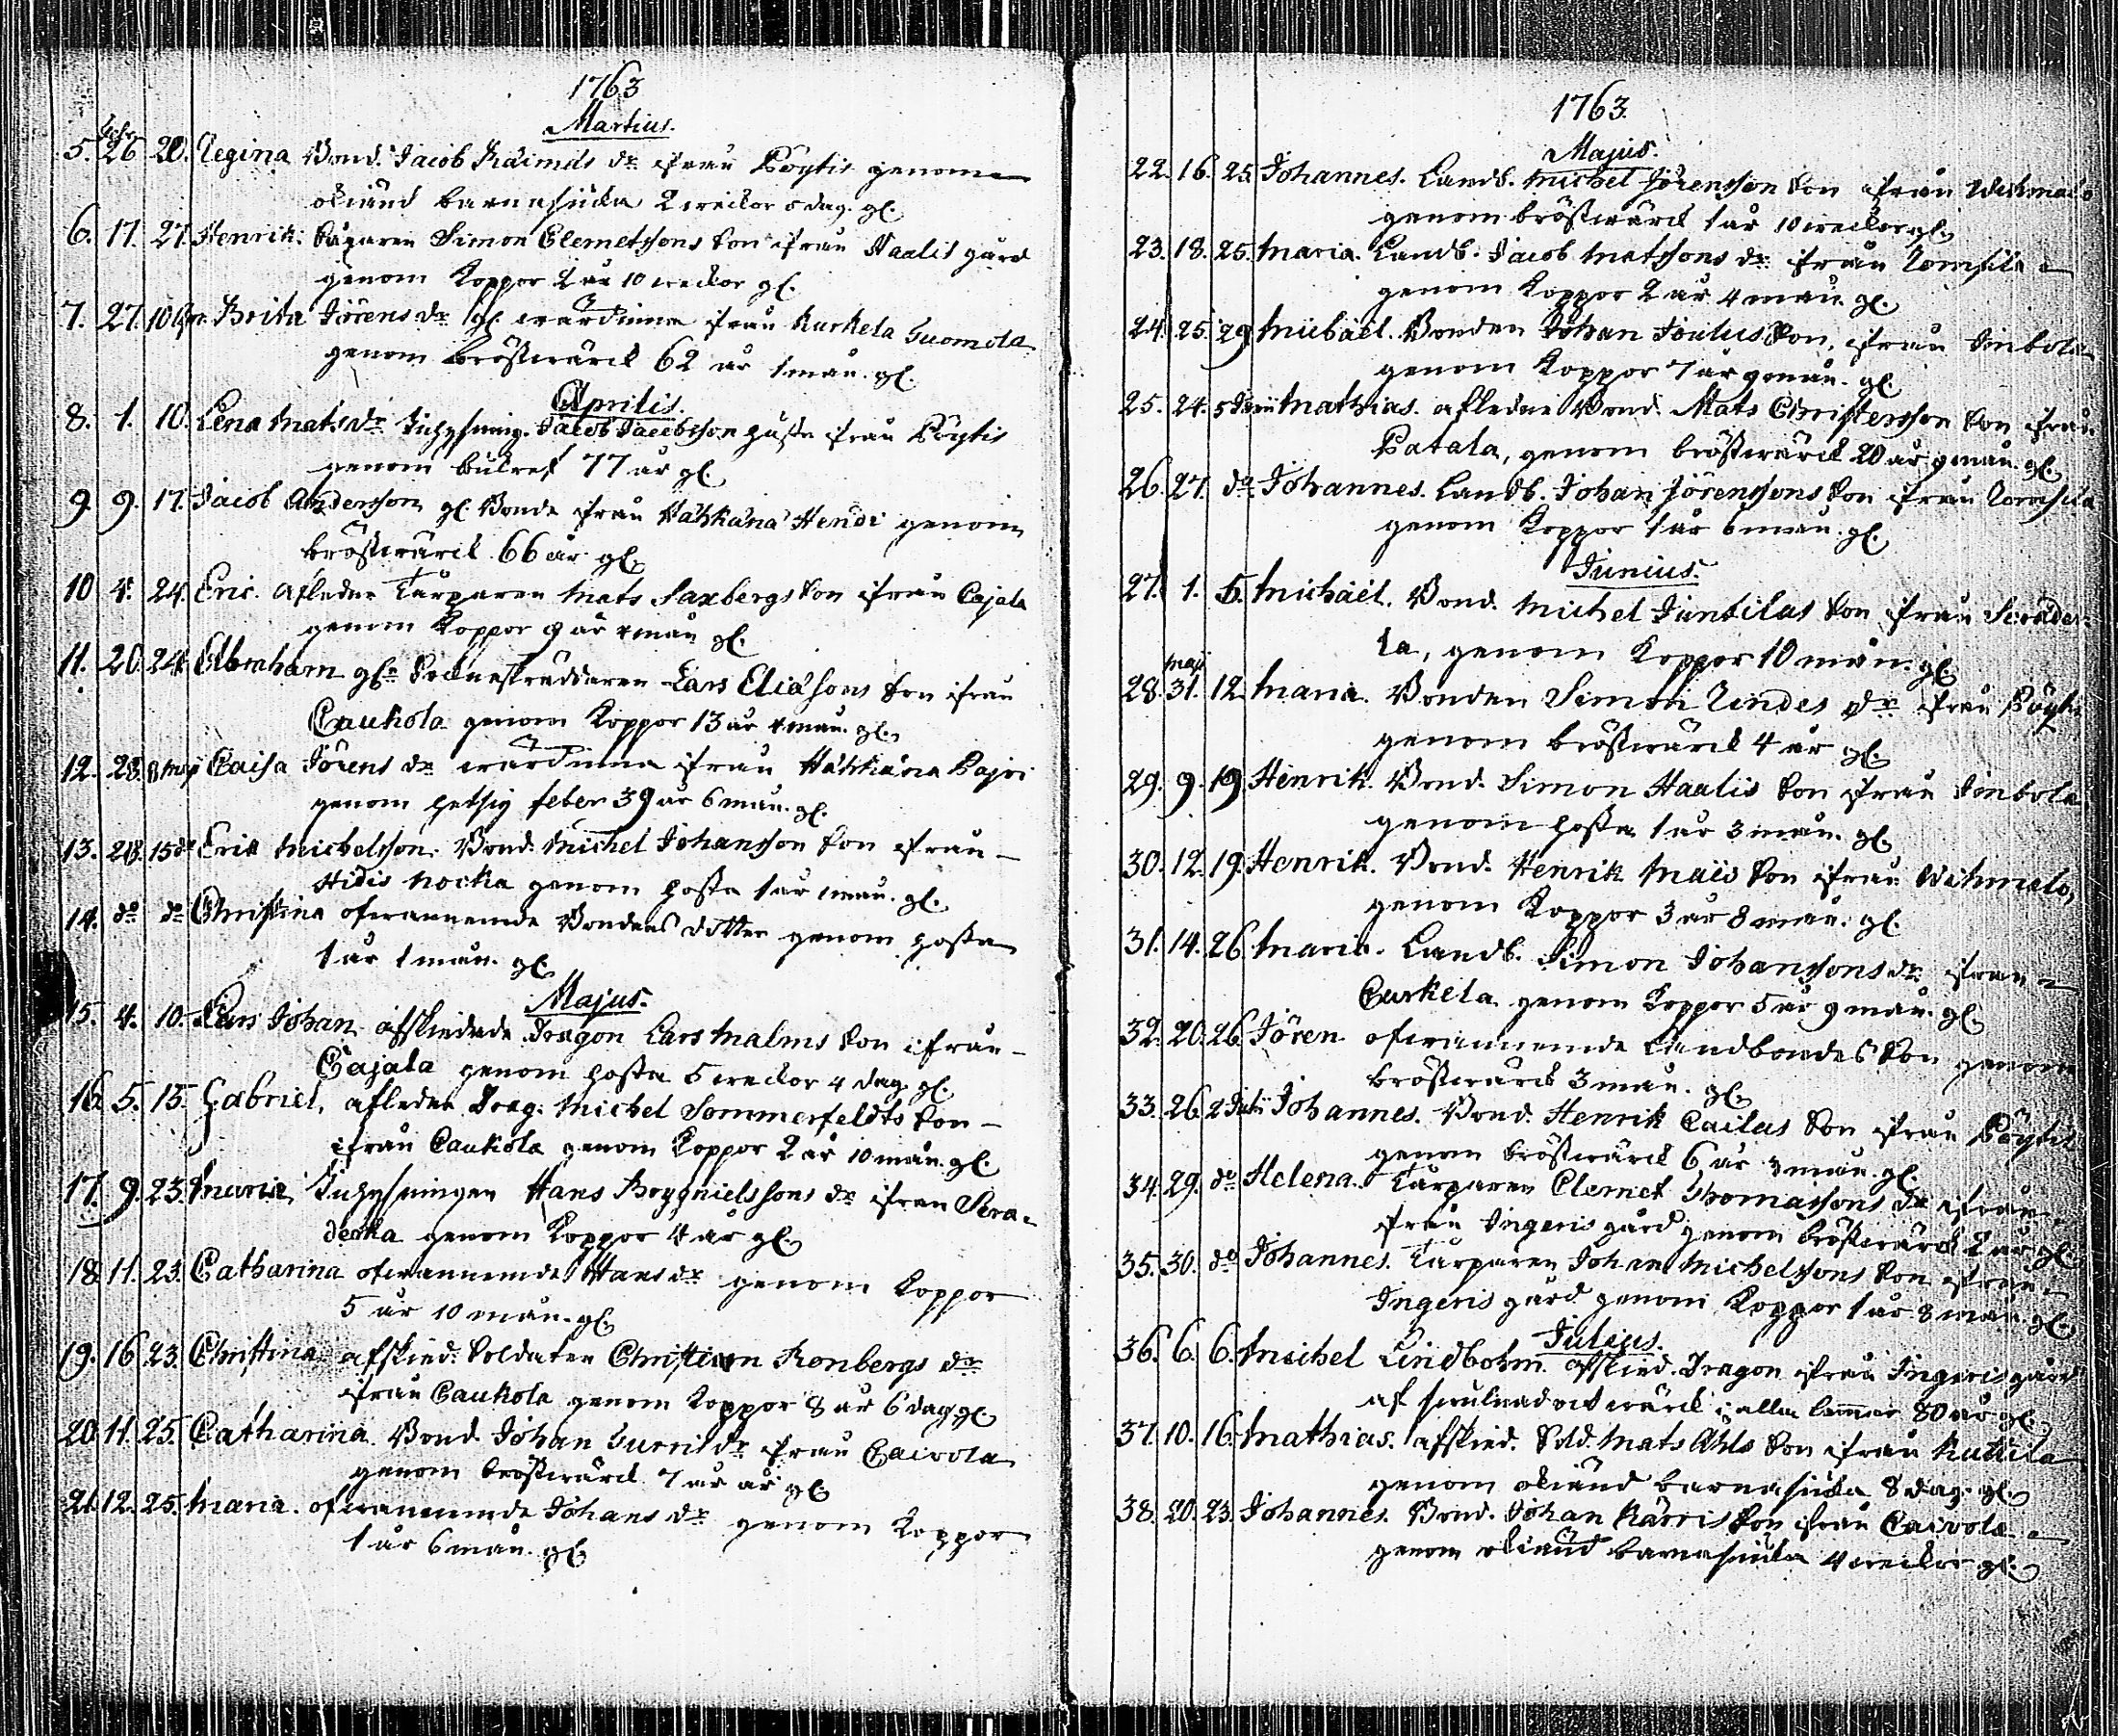 1763
Martius.
Febr.
5. 26 20. Regina Bond. Jacob Räimäs dr ifrån Pöytis genom
okiänd barnasiuka 2 weckor 5 dag. gl.
6. 17. 27. Henrik. Simon Clemetssons Son ifrån Haalis gård
genom Koppor 2 år 10 weckor gl.
7. 27. 10 Apr. Brita Jörens dr gl. wärdinna ifrån Kurkela Tuomola
genom bröstwärck 62 år 1 mån. gl.
Aprilis.
8. 1. 10. Lena Mats dr Inhysning. Jacob Jacobsson hustru ifrån Pöytis
genom bukref 77 år gl.
9. 9. 17. Jacob Andersson gl. Bonde ifrån Hahkana Hendi genom
bröstwärck 66 år gl.
10 4. 24. Eric. Afledne Torparen Mats Saxbergs Son ifrån Cajala
genom Koppor 9 år 4 mån gl.
11. 20. 24. Abraham gln Sockneskräddaren Lars Eliäsons Son ifrån
Caukola genom Koppor 13 år 4 mån. gl.
12. 28. 8 Maji Caisa Jörens dr wärdinna ifrån Hahkana Pajri
genom hetsig feber 39 år 6 mån. gl.
13. 28. 15 do Erik Michelsson. Bond. Michel Johansson Son ifrån
Hidis Nocka genom hosta 1 år 1 mån. gl.
14. do do Christina ofwannemde Bondens dotter genom hosta
1 år 1 mån. gl.
Majus.
15. 4. 10. Lars Johan afskiedade Dragon Lars Malms Son ifrån
Cajala genom hosta 5 weckor 4 dag. gl.
16. 5. 15. Gabriel. afledne Drag. Michel Sommerfeldts Son
ifrån Caukola genom Koppor 2 år 10 mån. gl.
17. 9. 23. Maria. Inhysningen Hans Brygnielssons dr ifrån Sera-
derka genom Koppor 4 år gl.
18 11. 23. Catharina ofwannemde Hans dr genom Koppor
5 år 10 mån. gl.
19. 16 23. Christina afskied. Soldaten Christian Ronbergs dr
ifrån Caukola genom Koppor 8 år 6 dag. gl.
20. 11. 25. Catharina. Bond. Johan Surril dr ifrån Caivola
genom bröstwärck 7 år år gl.
21. 12. 25. Maria. ofwannemde Johans dr genom Koppor
1 år 6 mån. gl.
1763.
Majus.
22. 16. 25. Johannes. Landb. Michel Jörensson Son ifrån Wehmalo
genom bröstwärck 1 år 10 weckor gl.
23. 18. 25. Maria. Landb. Jacob Matssons dr ifrån Tomsila
genom Koppor 2 år 4 mån. gl.
24. 25. 29 Michäel. Bonden Johan Joulus Son, ifrån Simbola
genom Koppor 7 år 9 mån. gl.
25. 24. 5 Junii Mathias. afledne Bond. Mats Christersson Son ifrån
Patala, genom bröstwärck 20 år 9 mån. gl.
26. 27. do Johannes. Landb. Johan Jörenssons Son ifrån Tomsila
genom Koppor 1 år 6 mån. gl.
Junius.
27. 1. 5. Michäel. Bond. Michel Juntilas Son ifrån Seräder-
la, genom Koppor 10 mån. gl.
Maji
28. 31. 12. Maria. Bonden Simon Rindes dr ifrån Pöytis
genom bröstwärck 4 år gl.
29. 9. 19 Henrik. Bond. Simon Haalis Son ifrån Simbola
genom hosta 1 år 3 mån. gl.
30. 12. 19. Henrik. Bond. Henrik Maijs Son ifrån Wehmalo,
genom Koppor 3 år 8 mån. gl.
31. 14. 26. Maria. Landb. Simon Johanssons dr ifrån
Curkela genom Koppor 5 år 9 mån. gl.
32. 20. 26. Jören ofwannemde Landbondes Son genom
bröstwärck 3 mån. gl.
33. 26. 2 Julii Johannes. Bond. Henrik Cailas Son ifrån Pöytis
genom bröstwärck 6 år 3 mån. gl.
34. 29. do Helena. Torparen Clemet Thomassons dr ifrån
ifrån Ingeris gård genom bröstwärck 2 år gl.
35. 30. do Johannes. Torparen Johan Michelssons Son ifrån
Ingeris gård genom Koppor 1 år 8 mån. gl.
Julius.
36. 6. 6. Michel Lindbohm. afskied. Dragon ifrån Ingeris gård
af swulnad och wärck i alla lemmar 80 år gl.
37. 10. 16. Mathias. afskied. Sold. Mats Ahls Son ifrån Kuttila
genom okiänd barnasiuka 8 dag. gl.
38. 20. 23. Johannes. Bond. Johan Kärris Son ifrån Caivola
genom okiänd barnasiuka 4 weckor gl.